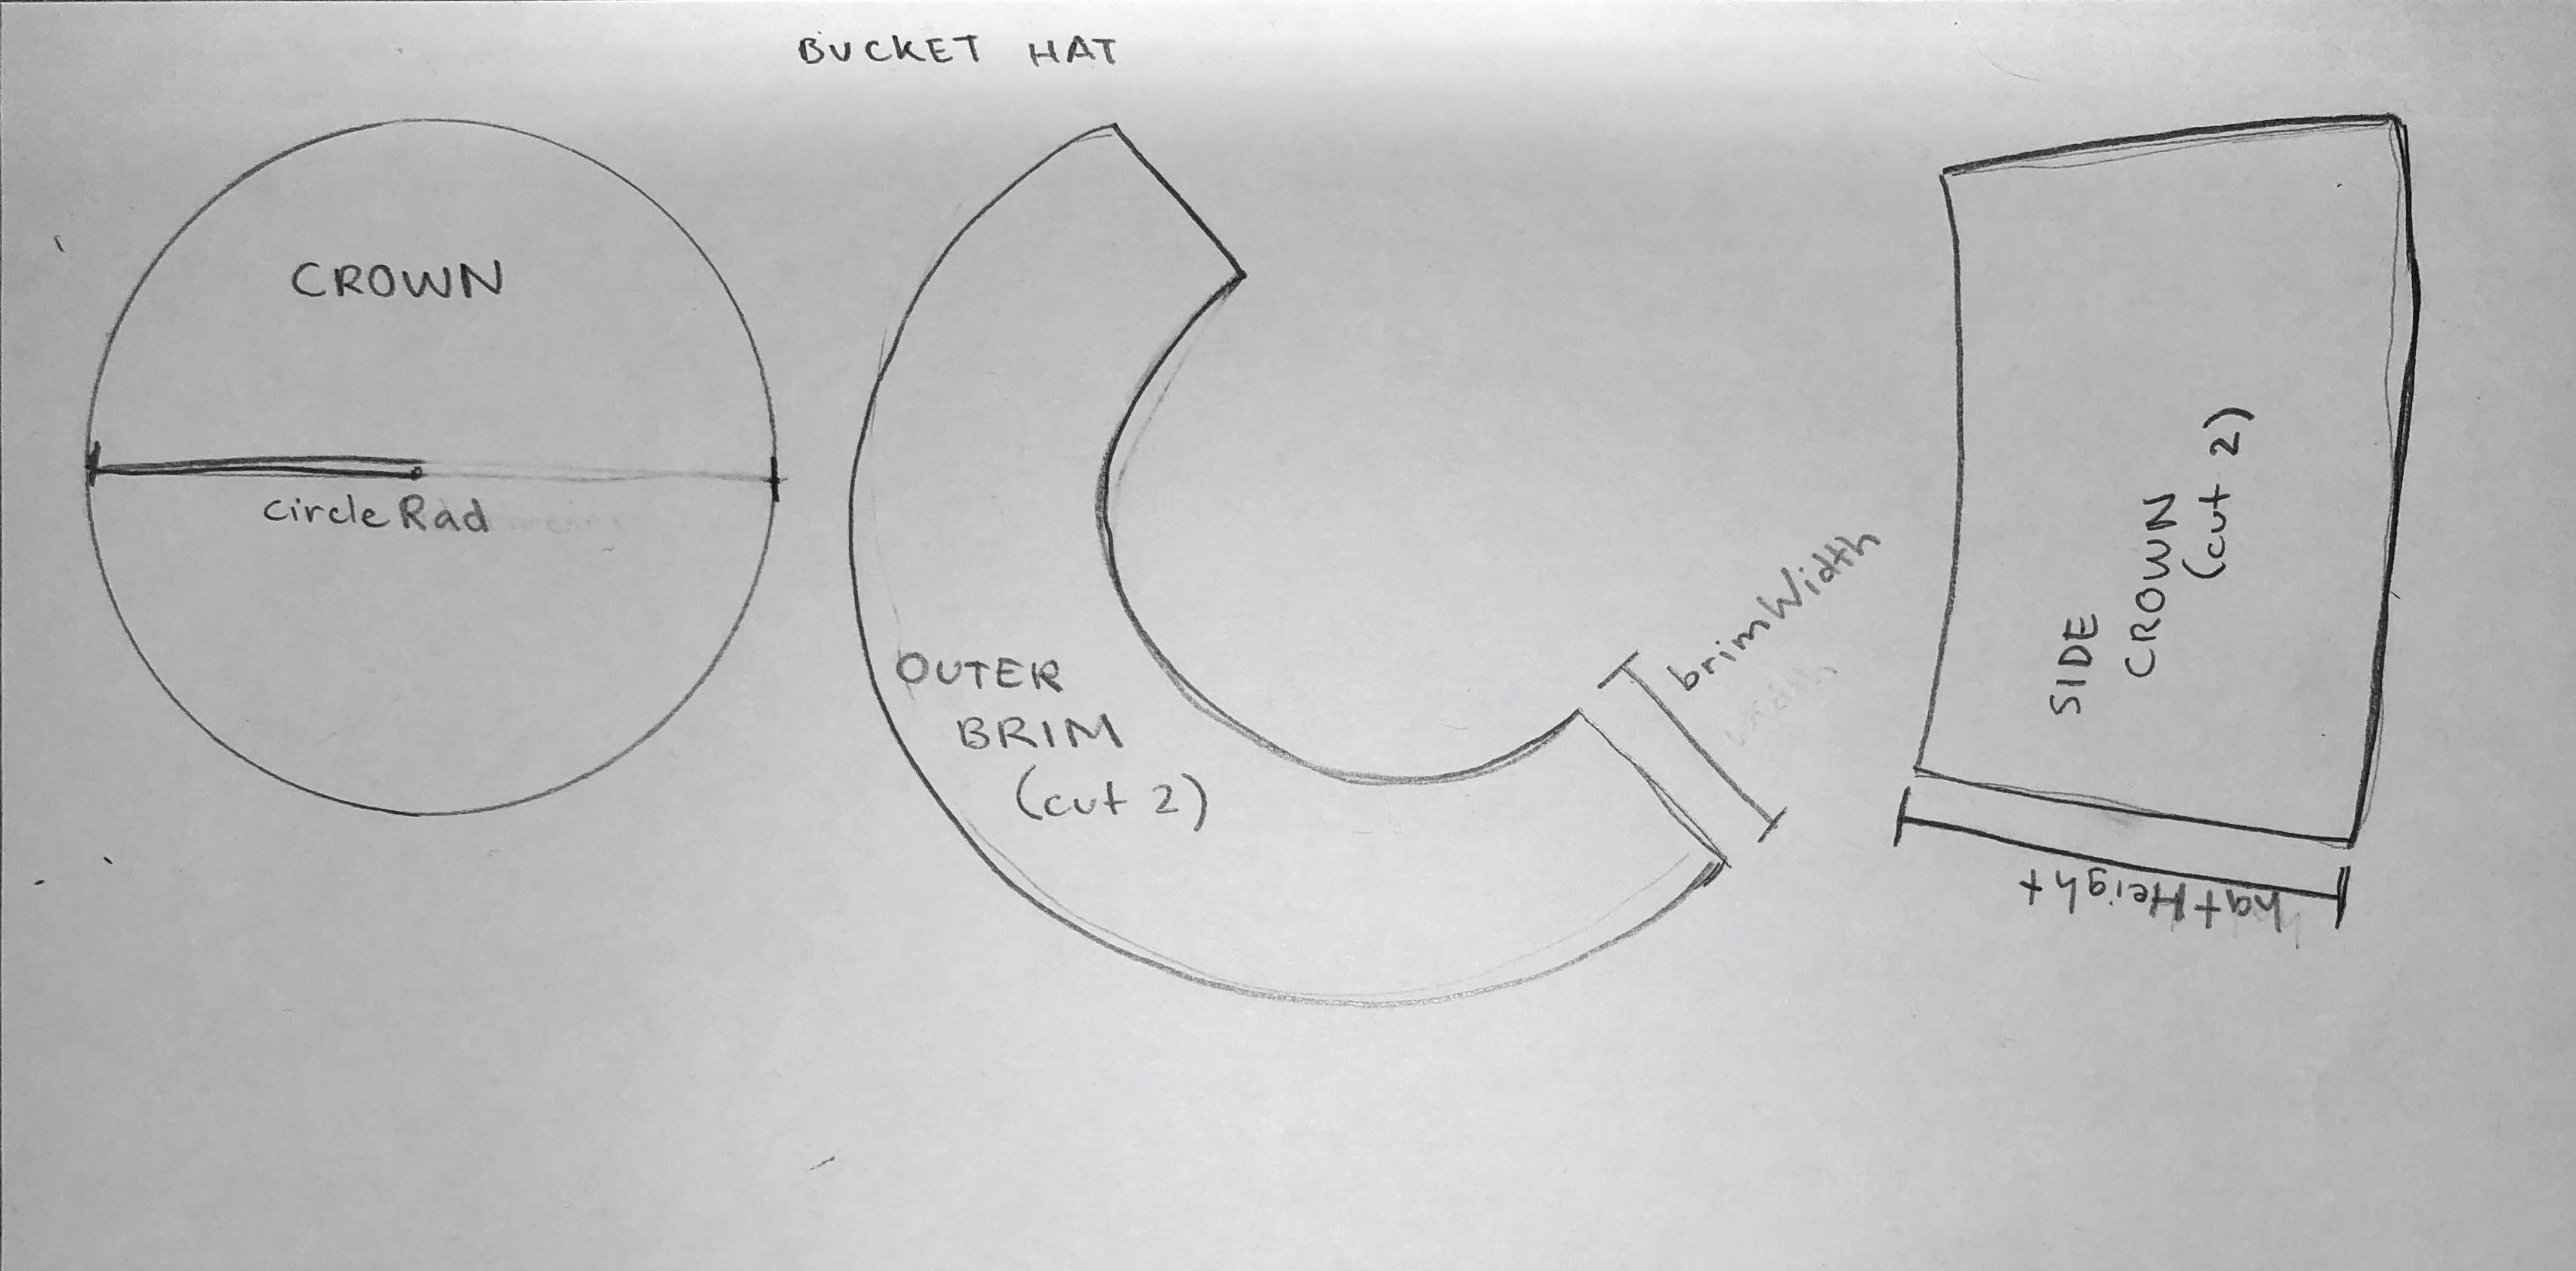 BUCKET HAT
CROWN
circleRad
OUTER
BRIM
(cut 2)
brimWidth
width
SIDE
CROWN
(cut 2)
hatHeight